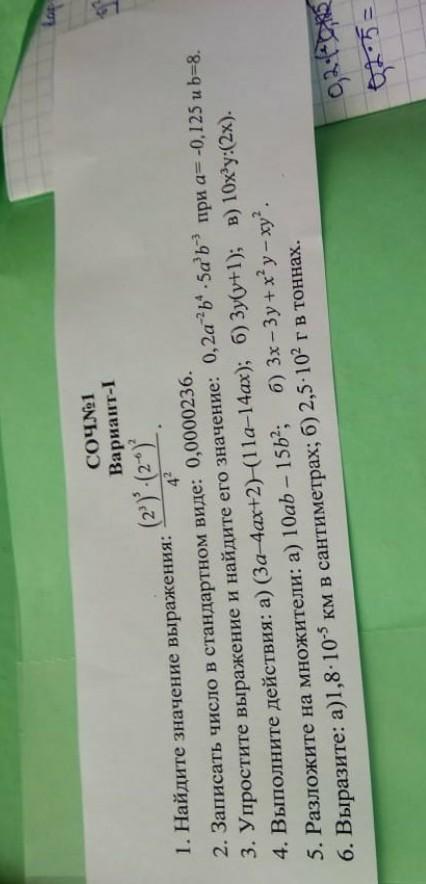 СОЧ№1
Вариант-I
1. Найдите значение выражения: \frac{(2^3)^5 \cdot (2^{-6})^2}{4^2}.
2. Записать число в стандартном виде: 0,0000236.
3. Упростите выражение и найдите его значение: 0,2a⁻²b⁴ · 5a³b⁻³ при a= -0,125 и b=8.
4. Выполните действия: а) (3a–4ax+2)–(11a–14ax); б) 3y(y+1); в) 10x³y:(2x).
5. Разложите на множители: а) 10ab – 15b²; б) 3x – 3y + x² y – xy² .
6. Выразите: а)1,8·10⁻⁵ км в сантиметрах; б) 2,5·10² г в тоннах.
0,2·5=